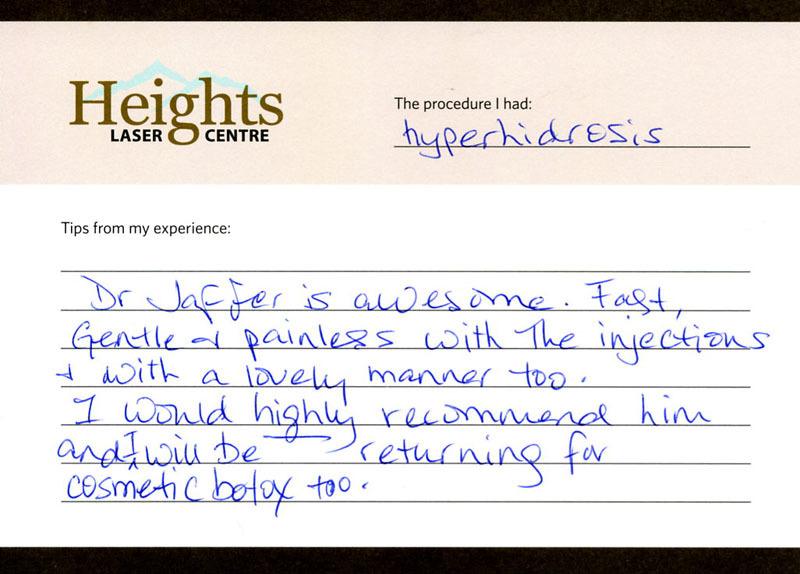 Heights
LASER CENTRE
The procedure I had:
hyperhidrosis
Tips from my experience:
Dr Jaffer is awesome. Fast,
Gentle & painless with The injections
& with a lovely manner too.
I would highly recommend him
and I will be returning for
cosmetic botox too.